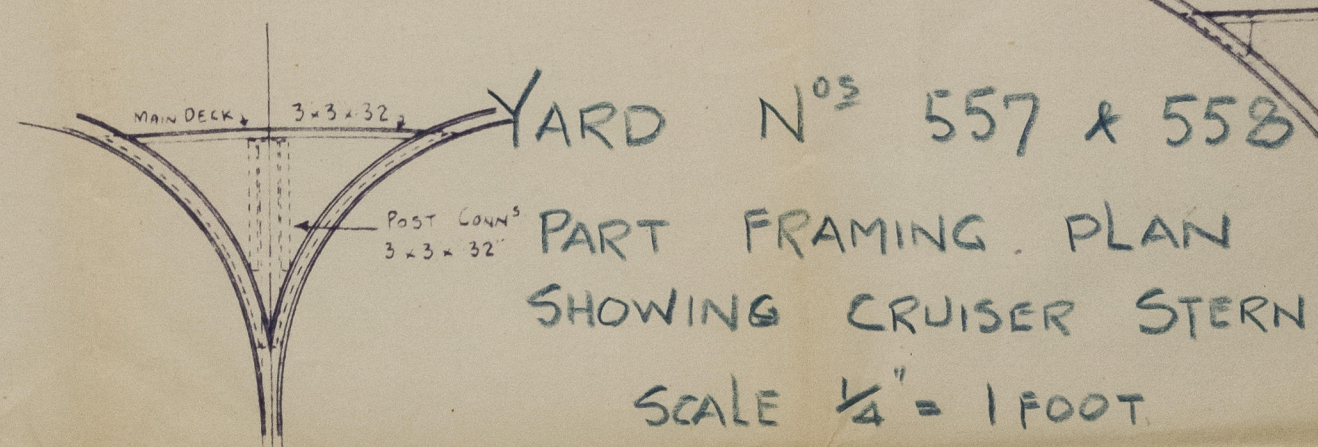 MAIN DECK 3 x 3 x .32
POST CONNS
3 x 3 x .32"
YARD NOS 557 & 558
PART FRAMING PLAN
SHOWING CRUISER STERN
SCALE 1/4" = 1 FOOT